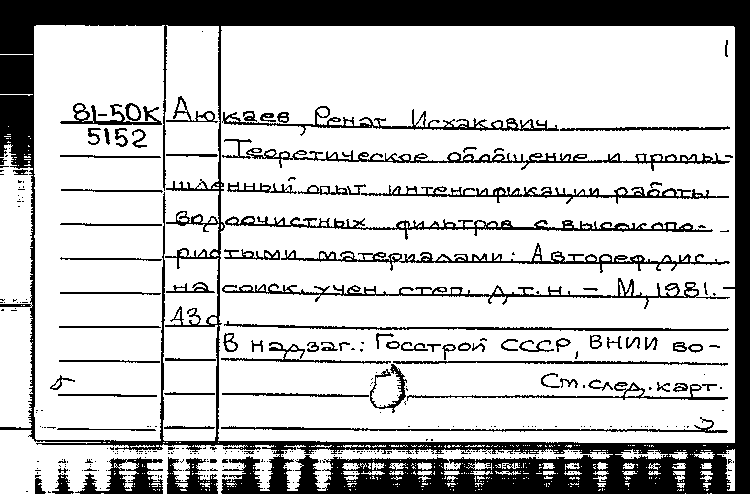 1
81-50К Аюкаев, Ренат Исхакович.
5152 Теоретическое обобщение и промы-
шленный опыт интенсификации работы
водоочистных фильтров с высокопо-
ристыми материалами: Автореф. дис.
на соиск. учен. степ. д.т.н. - М., 1981. -
43 с.
В надзаг.: Госстрой СССР, ВНИИ во-
Cm. след. карт.